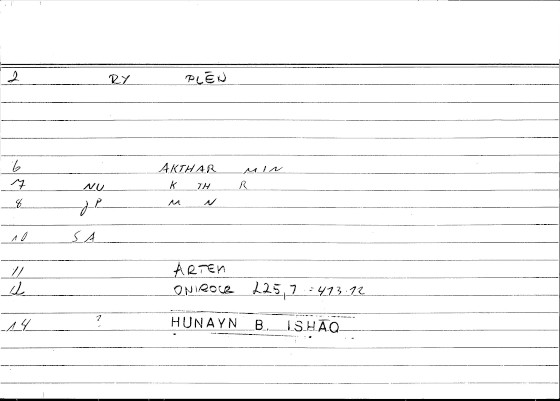 2 RY PLĒN
6 AKTHAR MIN
7 NU K TH R
8 JP M N
10 SA
11 ARTEM
12 ONIROCR 225,7 = 473.12
14 ? HUNAYN B. ISHĀQ